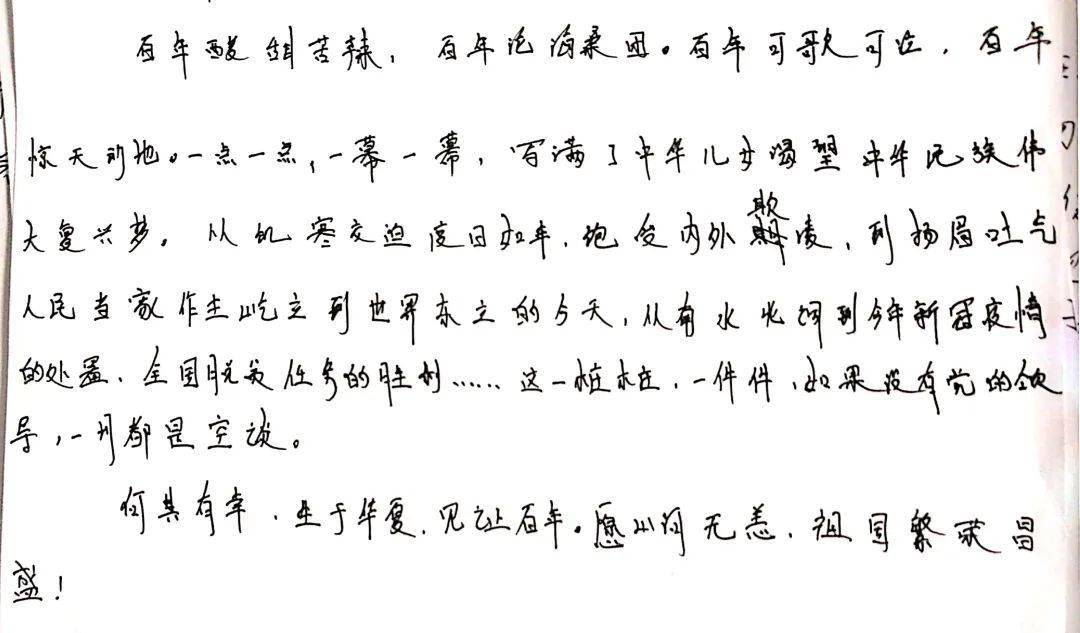 百年酸甜苦辣，百年沧海桑田。百年可歌可泣，百年
惊天动地。一点一点，一幕一幕，写满了中华儿女渴望中华民族伟
大复兴梦。从饥寒交迫度日如年，饱受内外欺凌，到扬眉吐气
人民当家作主屹立到世界东立的今天，从有水火洞到今年新冠疫情
的处置、全国脱贫任务的胜利……这一桩桩，一件件，如果没有党的领
导，一切都是空谈。
何其有幸，生于华夏，见证百年。愿山河无恙，祖国繁荣昌
盛！